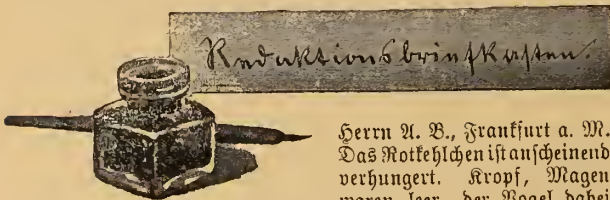 Redaktionsbriefkasten.
Herrn A. B., Frankfurt a. M.
Das Rotkehlchen ist anscheinend
verhungert. Kropf, Magen
waren leer, der Vogel dabei